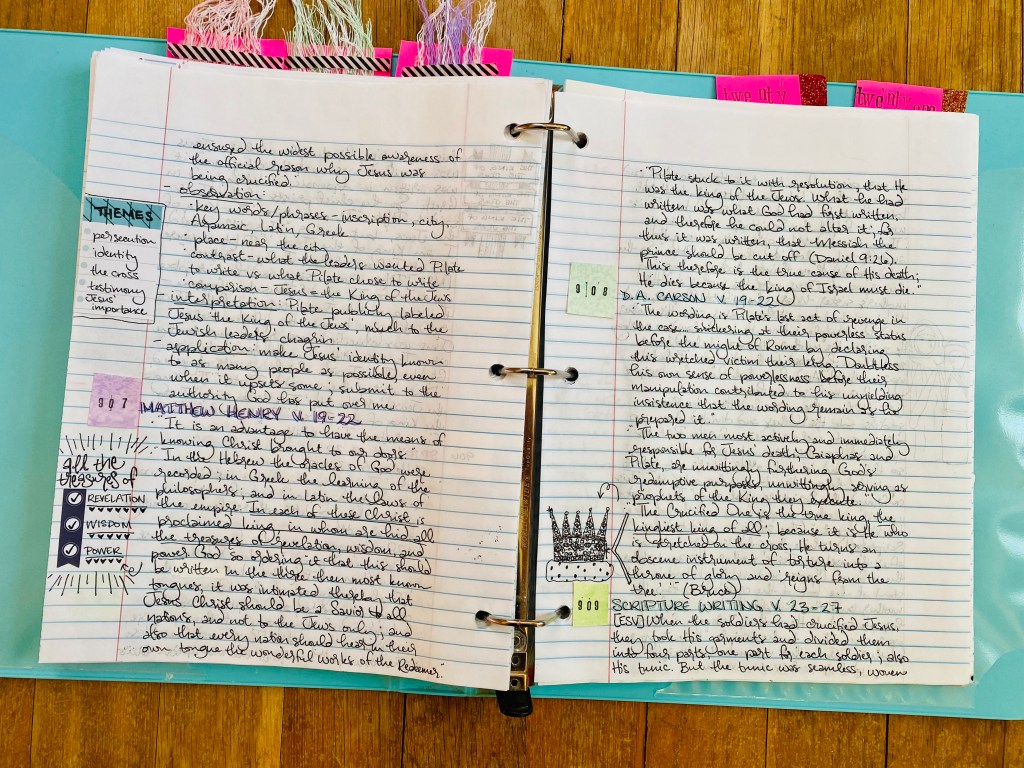 ensured the widest possible awareness of
the official reason why Jesus was
being crucified."
- observation:
· key words/phrases - inscription, city,
Aramaic, Latin, Greek
· place - near the city
· contrast - what the leaders wanted Pilate
to write vs what Pilate chose to write
· comparison - Jesus = the King of the Jews
- interpretation: Pilate publicly labeled
Jesus 'the King of the Jews', much to the
Jewish leaders' chagrin
- application: make Jesus' identity known
to as many people as possible, even
when it upsets some; submit to the
authority God has put over me
THEMES
persecution
identity
the cross
testimony
Jesus'
importance
907
MATTHEW HENRY V. 19-22
· "It is an advantage to have the means of
knowing Christ brought to our doors."
· "In the Hebrew the oracles of God were
recorded; in Greek the learning of the
philosophers; and in Latin the laws of
the empire. In each of these Christ is
proclaimed king, in whom are hid all
the treasures of revelation, wisdom, and
power. God so ordering it that this should
be written in the three then most known
tongues, it was intimated thereby that
Jesus Christ should be a Savior to all
nations, and not to the Jews only; and
also that every nation should hear in their
own tongue the wonderful works of the Redeemer."
all the
treasures of
REVELATION
WISDOM
POWER
twenty
twenty one
· "Pilate stuck to it with resolution, that He
was the king of the Jews. What he had
written was what God had first written,
and therefore he could not alter it; for
thus it was written, that Messiah the
prince should be cut off (Daniel 9:26).
This therefore is the true cause of His death;
He dies because the king of Israel must die."
908
D.A. CARSON V. 19-22
· "The wording is Pilate's last act of revenge in
the case, snickering at their powerless status
before the might of Rome by declaring
this wretched victim their king. Doubtless
his own sense of powerlessness before their
manipulation contributed to his unyielding
insistence that the wording remain as he
prepared it."
· "The two men most actively and immediately
responsible for Jesus' death, Caiaphas and
Pilate, are unwittingly furthering God's
redemptive purposes, unwittingly serving as
prophets of the King they execute."
· "The Crucified One is the true king, the
kingliest king of all; because it is He who
is stretched on the cross, He turns an
obscene instrument of torture into a
throne of glory and 'reigns from the
tree'." (Bruce)
909
SCRIPTURE WRITING V. 23-27
[ESV] When the soldiers had crucified Jesus,
they took His garments and divided them
into four parts, one part for each soldier; also
His tunic. But the tunic was seamless, woven